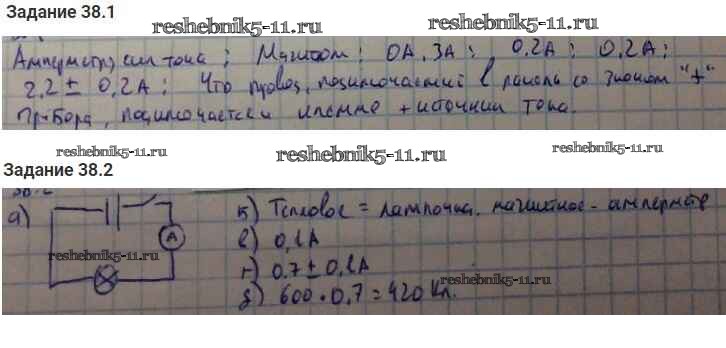 Задание 38.1
reshebnik5-11.ru
reshebnik5-11.ru
Амперметр; сил тока; Магниом; 0А, 3А; 0,2А; 0,2А;
2,2 ± 0,2А; Что провод, подключаемый к со знаком "+"
прибора, подключается к клемме + источник тока.
reshebnik5-11.ru
reshebnik5-11.ru
Задание 38.2
reshebnik5-11.ru
а)
А
б) Тепловое = лампочка, магнитное - амперметр
в) 0,1А
г) 0.7 ± 0,1А
д) 600 · 0,7 = 420 Кл.
reshebnik5-11.ru
reshebnik5-11.ru
reshebnik5-11.ru